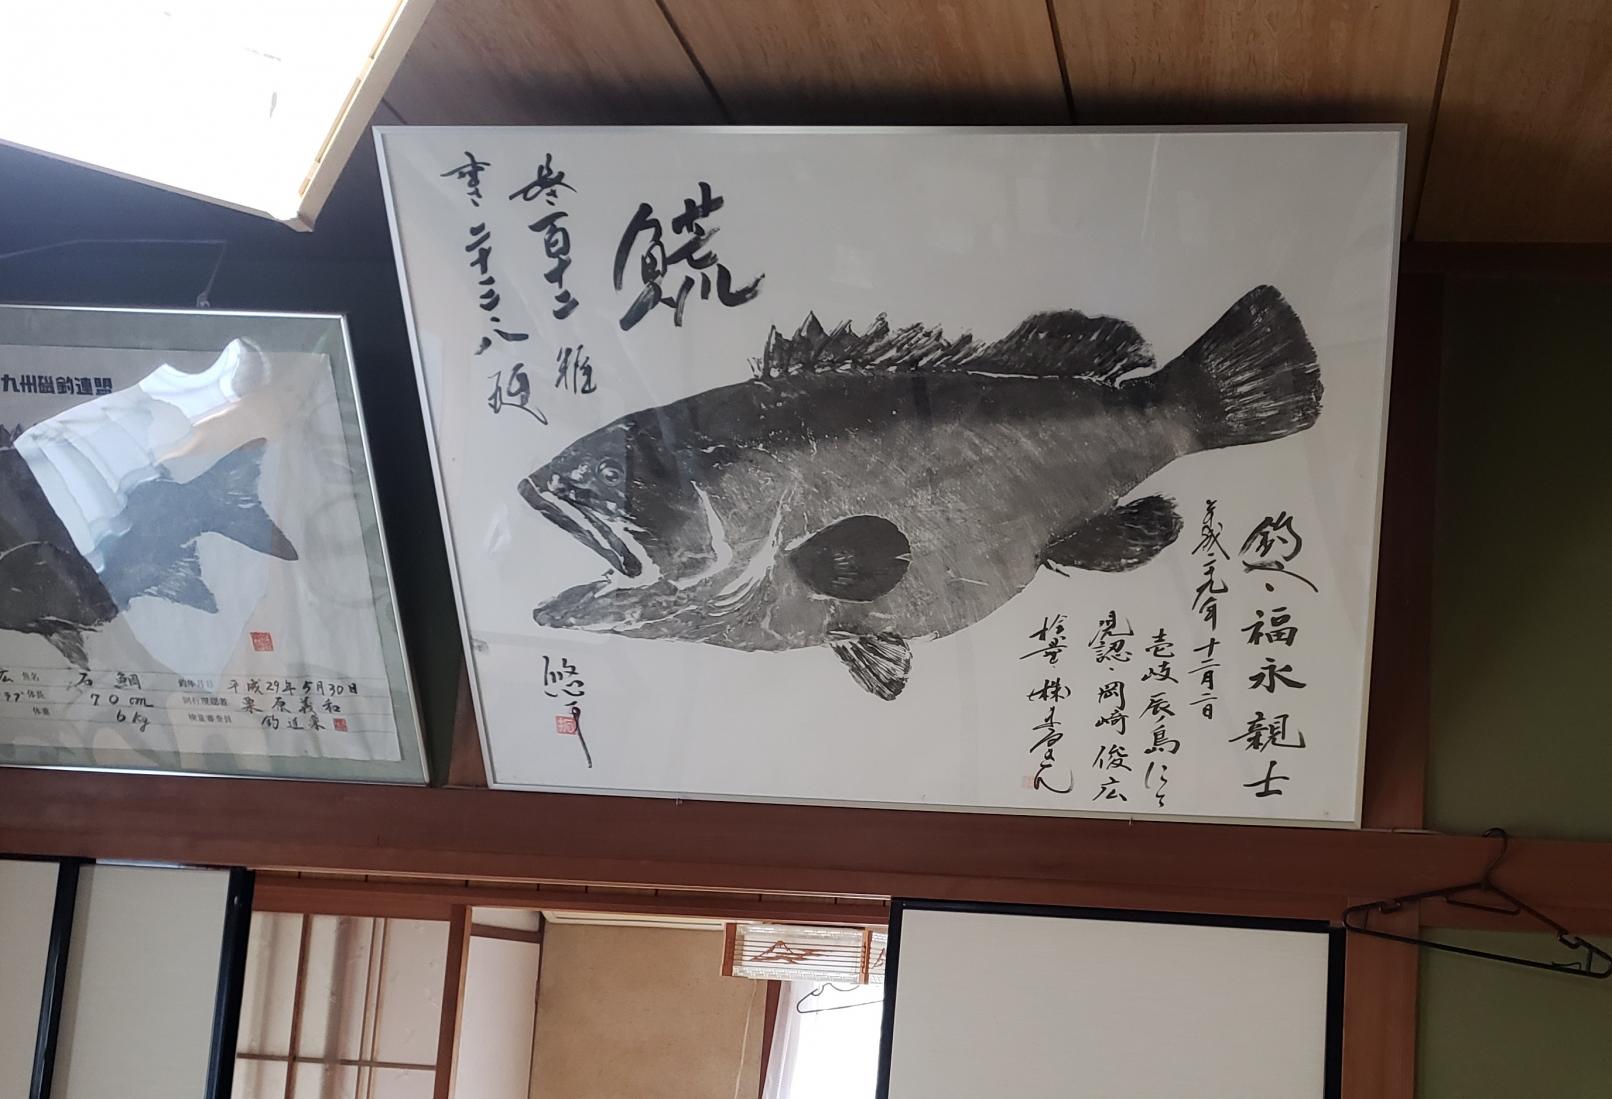 鱫
長 百十二 糎
重 二十三・八 瓩
釣人・福永親士
平成二九年十二月二日
壱岐辰ノ島にて
現認・岡崎俊広
悠
九州磯釣連盟
魚名 石鯛
体長 70cm
体重 6kg
釣年月日 平成29年5月30日
同行現認者 栗原義和
検量審査員 釣道楽